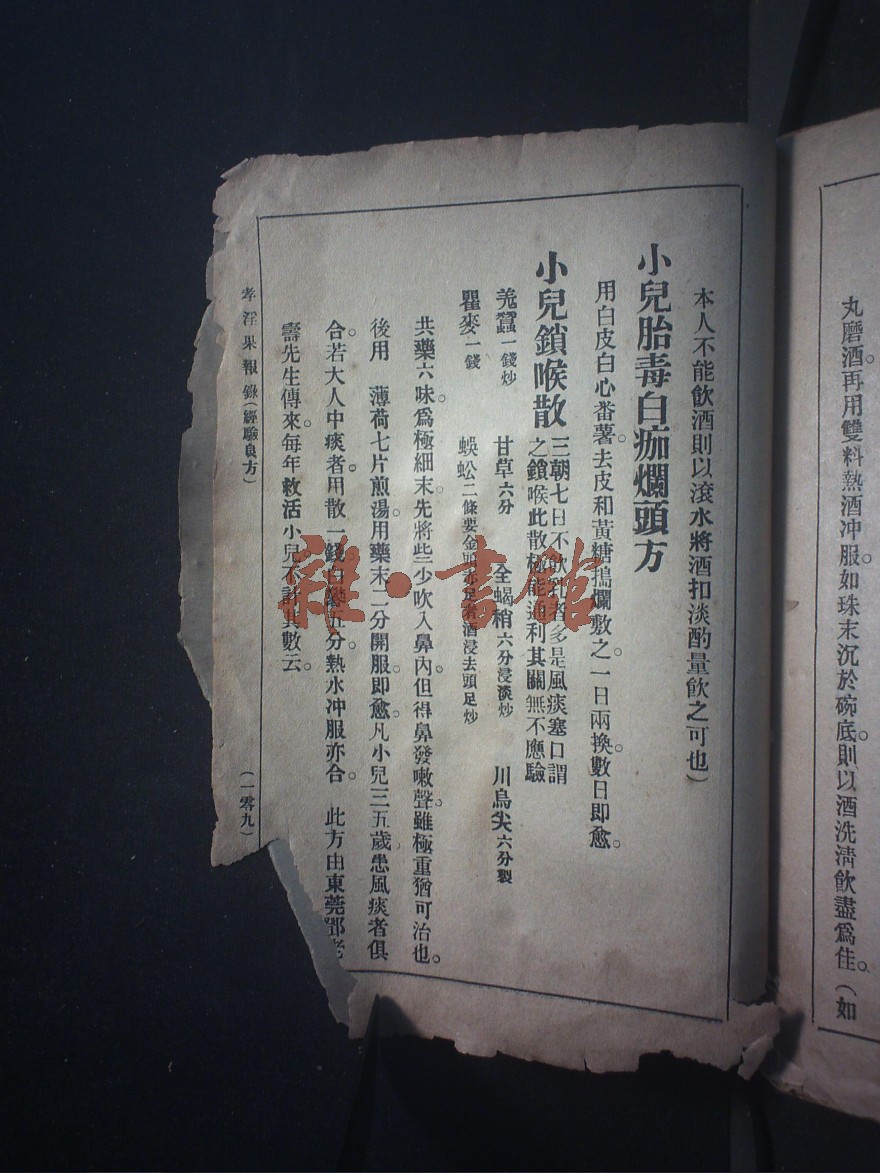 丸磨酒再用雙料熱酒冲服如珠末沉於碗底則以酒洗淸飲盡爲佳。(如
本人不能飲酒則以滾水將酒扣淡酌量飲之可也)
小兒胎毒白痂爛頭方
用白皮白心番薯。去皮和黃糖搗爛敷之。一日兩換。數日即愈。
小兒鎖喉散 三朝七日不飲乳者多是風痰塞口謂
之鎖喉此散極能通利其關無不應驗
羗蠶一錢炒 甘草六分 全蝎稍六分浸淡炒 川烏尖六分製
瞿麥一錢 蜈蚣二條要金頭赤足者酒浸去頭足炒
共藥六味。爲極細末。先將些少吹入鼻內。但得鼻發嗽聲。雖極重猶可治也。
後用 薄荷七片煎湯。用藥末二分開服即愈。凡小兒三五歲患風痰者俱
合。若大人中痰者。用散一錢白礬五分熱水冲服亦合。 此方由東莞鄧老
壽先生傳來。每年救活小兒。不計其數云。
孝淫果報錄(經驗良方) (一零九)
雜·書館